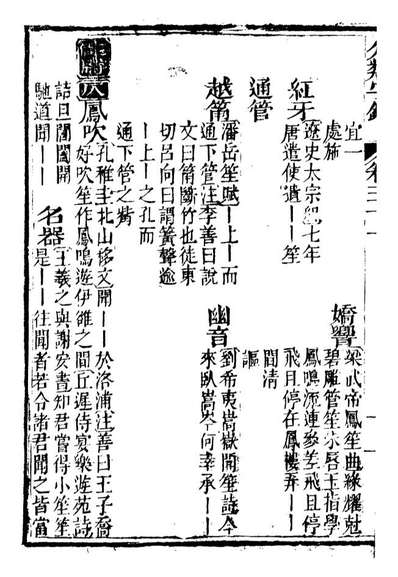 宜一
處施
嬌響
梁武帝鳳笙曲綠耀尅
碧雕管笙朱唇玉指學
鳳鳴流連參差飛且停
飛且停在鳳樓弄——
間清
謳
紅牙
遼史太宗紀七年
唐遣使遺——笙
通管
越筩
潘岳笙賦—上—而
通下管注李善曰說
文曰筩斷竹也徒東
切呂向曰謂簧聲逾
—上—之孔而
通下管之
幽音
劉希夷嵩嶽聞笙詩今
來臥嵩岑何幸承——
八
鳳吹
孔稚圭北山移文聞——於洛浦注善曰王子喬
好吹笙作鳳鳴遊伊雒之間丘遲侍宴樂遊苑詩
詰旦閶闔開
馳道聞——
名器
王羲之與謝安書知君當得小笙笙
是——往聞者若令諸君聞之皆當